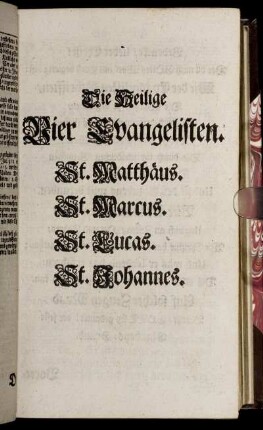 Die Heilige
Vier Evangelisten.
St. Matthäus.
St. Marcus.
St. Lucas.
St. Johannes.